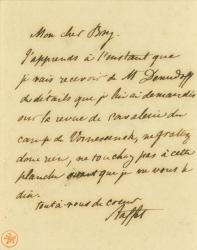 Mon cher Bry,
J'apprends à l'instant que
je vais recevoir de M Demidoff
des détails que je lui ai demandés
sur la revue de cavalerie du
camp de Vosnesensk, ne
donc rien, ne touchez pas à cette
planche avant que je ne vous le
dise.
tout à vous de coeur
Raffet